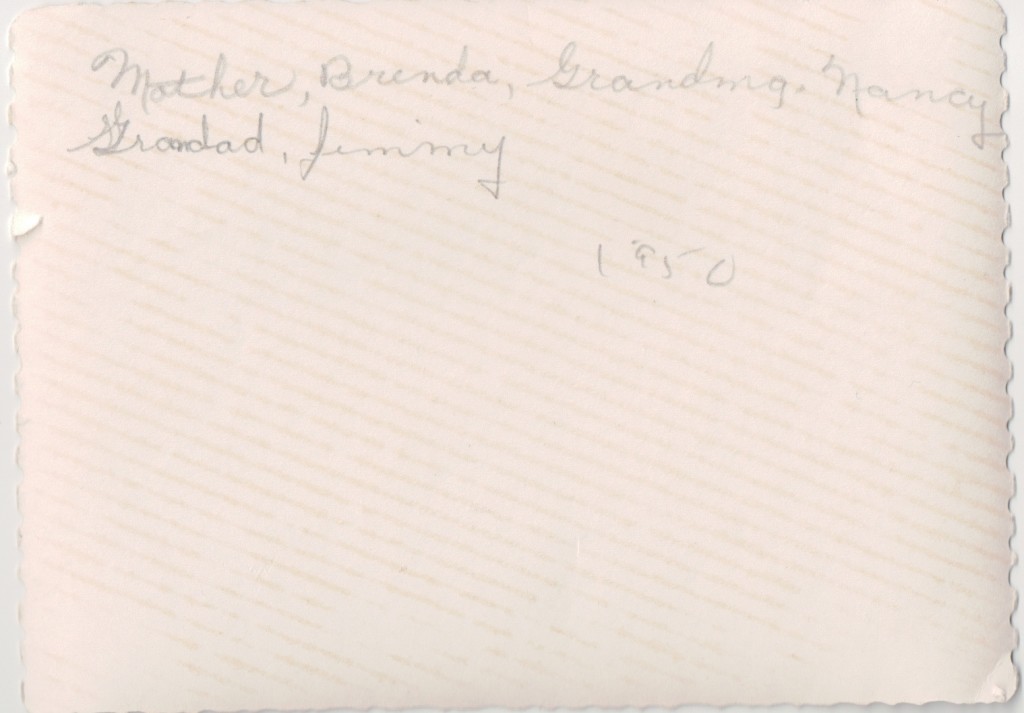 Mother, Brenda, Grandma. Nancy
Grandad, Jimmy
1950